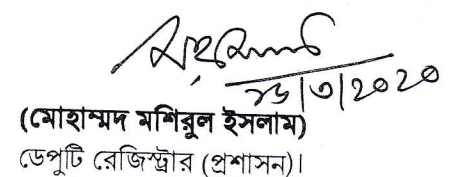 ১৬/৩/২০২০
(মোহাম্মদ মশিরুল ইসলাম)
ডেপুটি রেজিস্ট্রার (প্রশাসন)।